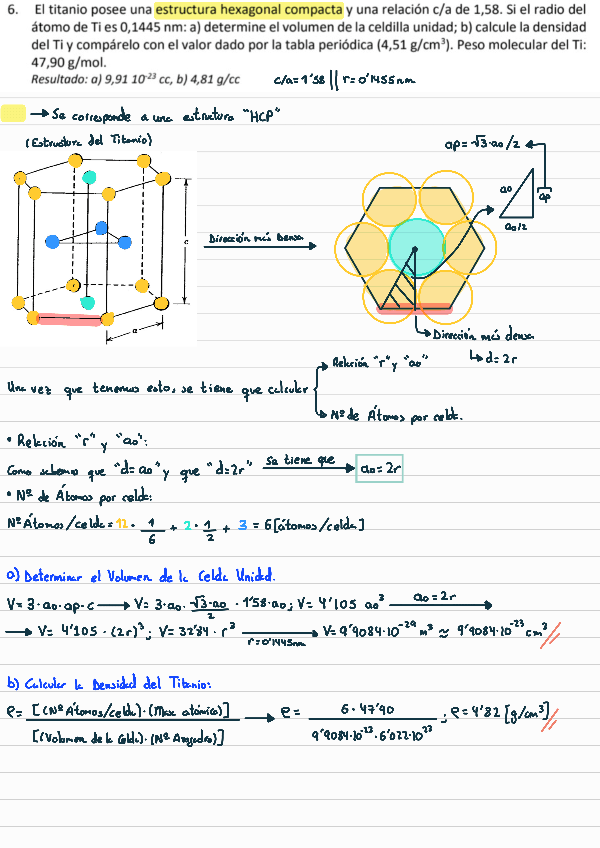 6. El titanio posee una estructura hexagonal compacta y una relación c/a de 1,58. Si el radio del
átomo de Ti es 0,1445 nm: a) determine el volumen de la celdilla unidad; b) calcule la densidad
del Ti y compárelo con el valor dado por la tabla periódica (4,51 g/cm³). Peso molecular del Ti:
47,90 g/mol.
Resultado: a) 9,91 10⁻²³ cc, b) 4,81 g/cc
c/a=1'58 || r=0'1455nm
→ Se corresponde a una estructura "HCP"
(Estructura del Titanio)
ap=√3·ao/2
ao
ap
ao/2
c
a
Dirección más Densa
Dirección más densa
↳ d=2r
Una vez que tenemos esto, se tiene que calcular
Relación "r" y "ao"
Nº de Átomos por celda.
• Relación "r" y "ao":
Como sabemos que "d=ao" y que "d=2r" se tiene que → ao=2r
• Nº de Átomos por celda:
Nº Átomos/celda=12·1/6 + 2·1/2 + 3 = 6[átomos/celda]
a) Determinar el Volumen de la Celda Unidad.
V=3·ao·ap·c → V=3·ao·√3·ao/2·1'58·ao; V=4'105 ao³ ao=2r →
→ V=4'105·(2r)³; V=32'84·r³ → r=0'1445nm V=9'9084·10⁻²⁹ m³ ≈ 9'9084·10⁻²³ cm³
b) Calcular la Densidad del Titanio:
ρ= [(Nº Átomos/celda)·(Masa atómica)] / [(Volumen de la Celda)·(Nº Avogadro)] → ρ= 6·47'90 / 9'9084·10⁻²³·6'022·10²³ ; ρ=4'82 [g/cm³]